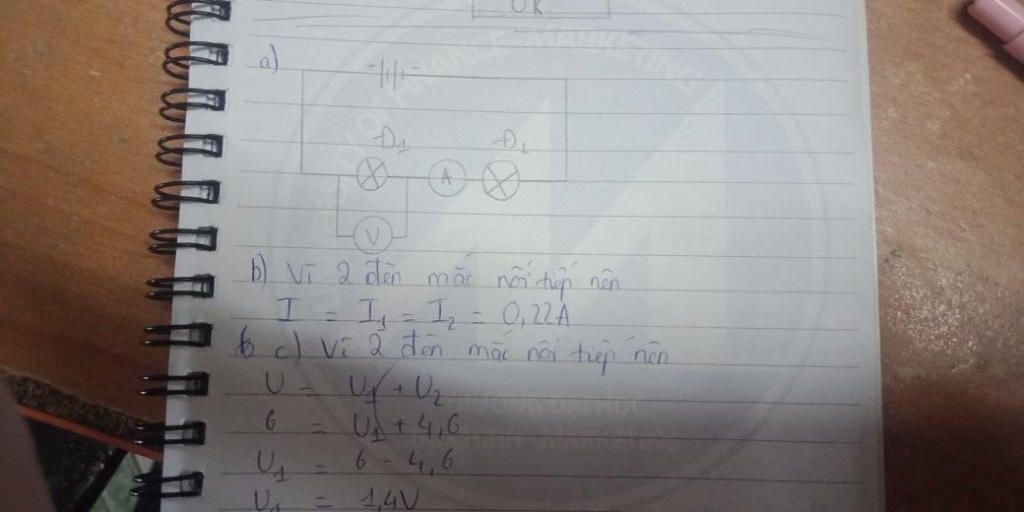 OK
a)
Đ1 Đ2
A
V
b) Vì 2 đèn mắc nối tiếp nên
I = I1 = I2 = 0,22A
c) Vì 2 đèn mắc nối tiếp nên
U = U1 + U2
6 = U1 + 4,6
U1 = 6 - 4,6
U1 = 1,4V